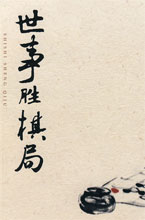 世事胜棋局
SHISHI SHENG QIJU